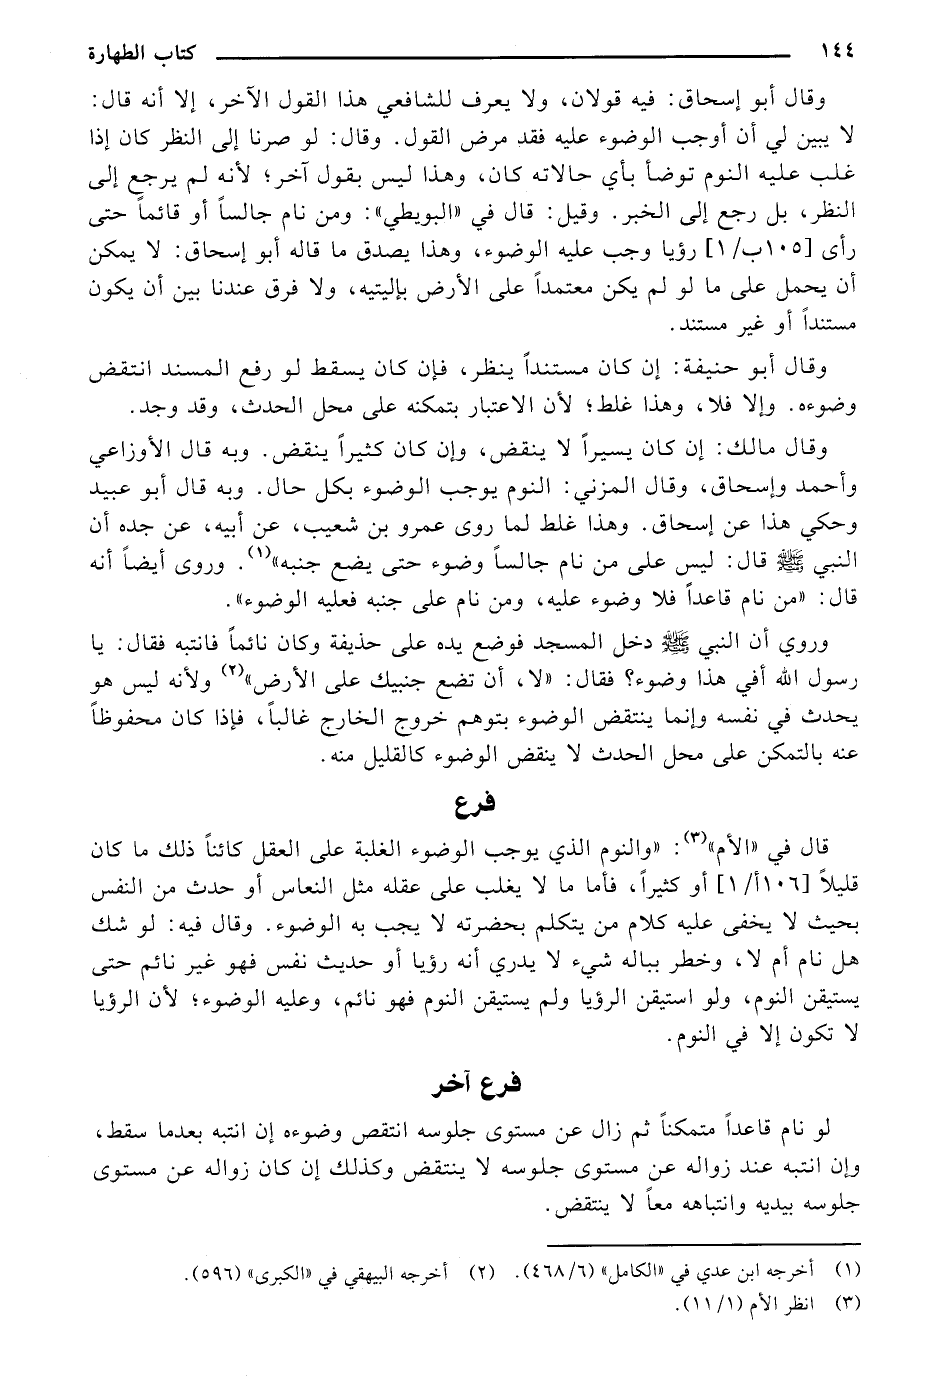 ١٤٤ كتاب الطهارة
وقال أبو إسحاق: فيه قولان، ولا يعرف للشافعي هذا القول الآخر، إلا أنه قال:
لا يبين لي أن أوجب الوضوء عليه فقد مرض القول. وقال: لو صرنا إلى النظر كان إذا
غلب عليه النوم توضأ بأي حالاته كان، وهذا ليس بقول آخر؛ لأنه لم يرجع إلى
النظر، بل رجع إلى الخبر. وقيل: قال في «البويطي»: ومن نام جالساً أو قائماً حتى
رأى [١٠٥ب/١] رؤيا وجب عليه الوضوء، وهذا يصدق ما قاله أبو إسحاق: لا يمكن
أن يحمل على ما لو لم يكن معتمداً على الأرض بإليتيه، ولا فرق عندنا بين أن يكون
مستنداً أو غير مستند.
وقال أبو حنيفة: إن كان مستنداً ينظر، فإن كان يسقط لو رفع المسند انتقض
وضوءه. وإلا فلا، وهذا غلط؛ لأن الاعتبار بتمكنه على محل الحدث، وقد وجد.
وقال مالك: إن كان يسيراً لا ينقض، وإن كان كثيراً ينقض. وبه قال الأوزاعي
وأحمد وإسحاق، وقال المزني: النوم يوجب الوضوء بكل حال. وبه قال أبو عبيد
وحكي هذا عن إسحاق. وهذا غلط لما روى عمرو بن شعيب، عن أبيه، عن جده أن
النبي ﷺ قال: ليس على من نام جالساً وضوء حتى يضع جنبه»(١). وروى أيضاً أنه
قال: «من نام قاعداً فلا وضوء عليه، ومن نام على جنبه فعليه الوضوء».
وروي أن النبي ﷺ دخل المسجد فوضع يده على حذيفة وكان نائماً فانتبه فقال: يا
رسول الله أفي هذا وضوء؟ فقال: «لا، أن تضع جنبيك على الأرض»(٢) ولأنه ليس هو
يحدث في نفسه وإنما ينتقض الوضوء بتوهم خروج الخارج غالباً، فإذا كان محفوظاً
عنه بالتمكن على محل الحدث لا ينقض الوضوء كالقليل منه.
فرع
قال في «الأم»(٣): «والنوم الذي يوجب الوضوء الغلبة على العقل كائناً ذلك ما كان
قليلاً [١٠٦أ/١] أو كثيراً، فأما ما لا يغلب على عقله مثل النعاس أو حدث من النفس
بحيث لا يخفى عليه كلام من يتكلم بحضرته لا يجب به الوضوء. وقال فيه: لو شك
هل نام أم لا، وخطر بباله شيء لا يدري أنه رؤيا أو حديث نفس فهو غير نائم حتى
يستيقن النوم، ولو استيقن الرؤيا ولم يستيقن النوم فهو نائم، وعليه الوضوء؛ لأن الرؤيا
لا تكون إلا في النوم.
فرع آخر
لو نام قاعداً متمكناً ثم زال عن مستوى جلوسه انتقص وضوءه إن انتبه بعدما سقط،
وإن انتبه عند زواله عن مستوى جلوسه لا ينتقض وكذلك إن كان زواله عن مستوى
جلوسه بيديه وانتباهه معاً لا ينتقض.
(١) أخرجه ابن عدي في «الكامل» (٤٦٨/٦). (٢) أخرجه البيهقي في «الكبرى» (٥٩٦).
(٣) انظر الأم (١١/١).